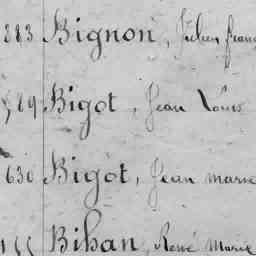 883 Bignon, Julien franç
589 Bigot, Jean Louis
630 Bigot, Jean marie
155 Bihan, René Marie